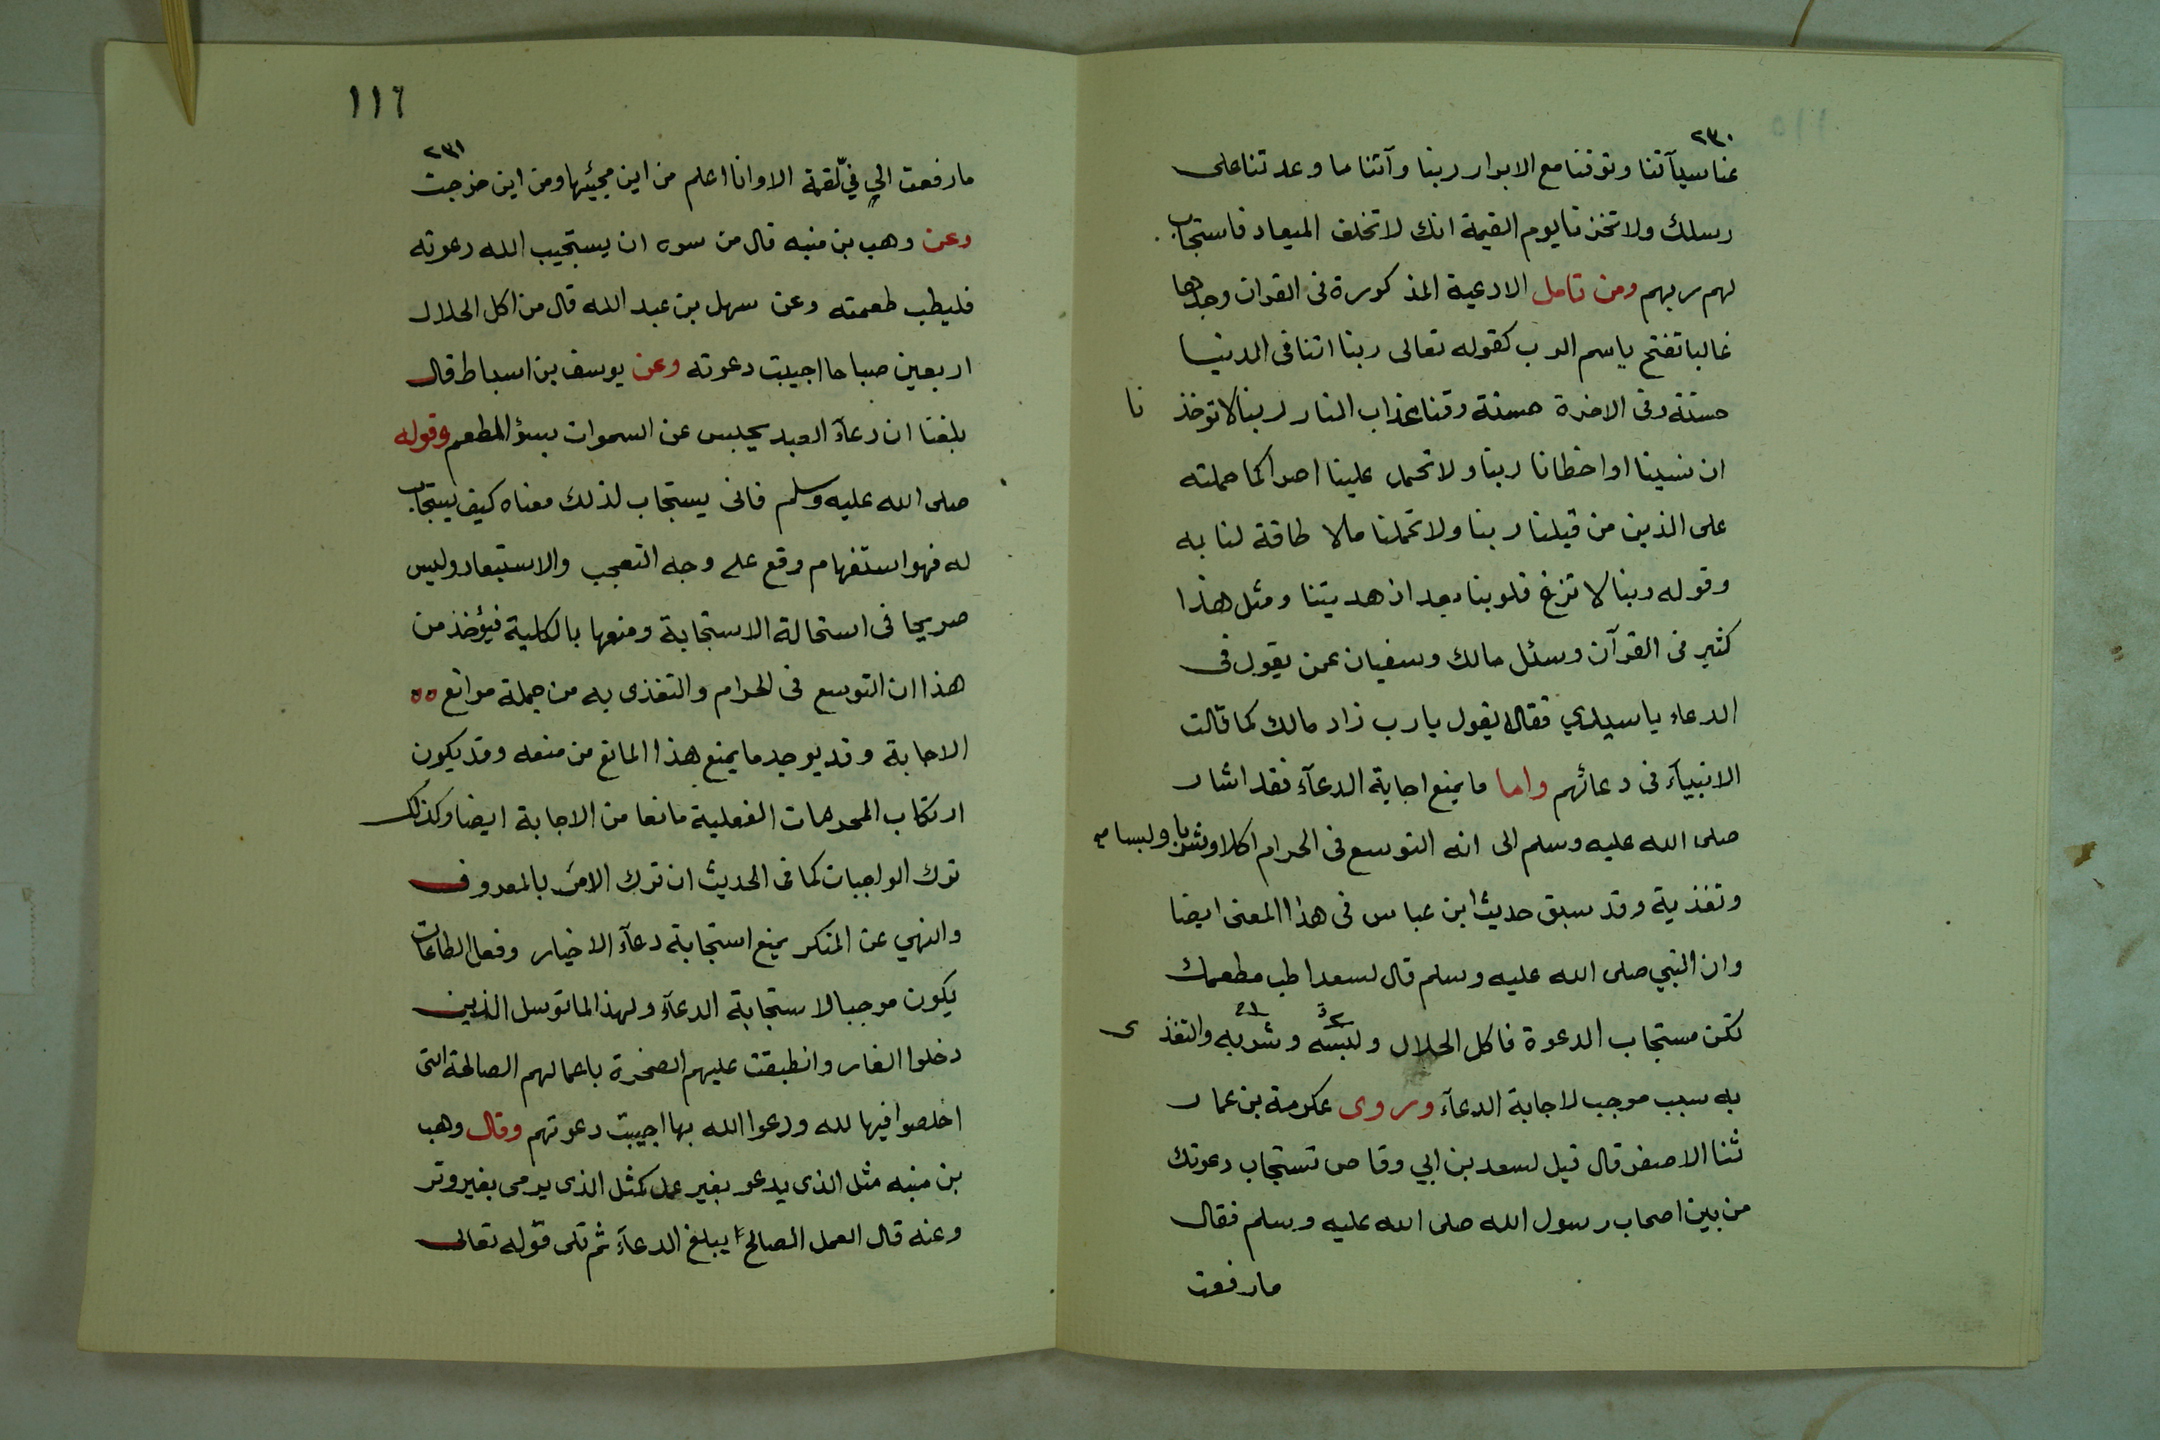 ٢٣٠
عنا سيآتنا وتوفنا مع الابرار ربنا وآتنا ما وعدتنا على
رسلك ولا تخزنا يوم القيمة انك لا تخلف الميعاد فاستجاب
لهم ربهم ومن تامل الادعية المذكورة فى القران وجدها
غالبا تفتح باسم الرب كقوله تعالى ربنا اتنا فى الدنيا
حسنة وفى الاخرة حسنة وقنا عذاب النار ربنا لا توخذ نا
ان نسينا او اخطانا ربنا ولا تحمل علينا اصرا كما حملته
على الذين من قبلنا ربنا ولا تحملنا مالا طاقة لنا به
وقوله ربنا لا تزغ قلوبنا بعد اذ هديتنا ومثل هذا
كثير فى القرآن وسئل مالك وسفيان عمن يقول فى
الدعاء يا سيدي فقالا يقول يارب زاد مالك كما قالت
الانبيآء فى دعائهم واما ما يمنع اجابة الدعآء فقد اشار
صلى الله عليه وسلم الى انه التوسع فى الحرام اكلا وشربا ولبسا
وتغذية وقد سبق حديث ابن عباس فى هذا المعنى ايضا
وان النبي صلى الله عليه وسلم قال لسعد اطب مطعمك
تكن مستجاب الدعوة فاكل الحلال ولبسه وشربه والتغذ ى
به سبب موجب لاجابة الدعآء وروى عكرمة بن عمار
ثنا الاصفر قال قيل لسعد بن ابي وقاص تستجاب دعوتك
من بين اصحاب رسول الله صلى الله عليه وسلم فقال
مارفعت
١١٦
٢٣١
مارفعت الي في لقمة الا وانا اعلم من اين مجيئها ومن اين خرجت
وعن وهب بن منبه قال من سره ان يستجيب الله دعوته
فليطب طعمته وعن سهل بن عبد الله قال من اكل الحلال
اربعين صباحا اجيبت دعوته وعن يوسف بن اسباط قال
بلغنا ان دعآء العبد يحبس عن السموات بسؤ المطعم وقوله
صلى الله عليه وسلم فانى يستجاب لذلك معناه كيف يستجاب
له فهو استفهام وقع على وجه التعجب والاستبعاد وليس
صريحا فى استحالة الاستجابة ومنعها بالكلية فيؤخذ من
هذا ان التوسع فى الحرام والتغذى به من جملة موانع
الاجابة وقد يوجد ما يمنع هذا المانع من منعه وقد يكون
ارتكاب المحرمات الفعلية مانعا من الاجابة ايضا وكذلك
ترك الواجبات كما فى الحديث ان ترك الامر بالمعروف
والنهي عن المنكر يمنع استجابة دعآء الاخيار وفعل الطاعات
يكون موجبا لاستجابة الدعآء ولهذا لما توسل الذين
دخلوا الغار وانطبقت عليهم الصخرة باعمالهم الصالحة التى
اخلصوا فيها لله ودعوا الله بها اجيبت دعوتهم وقال وهب
بن منبه مثل الذى يدعو بغير عمل كمثل الذى يرمى بغير وتر
وعنه قال العمل الصالح يبلغ الدعآء ثم تلى قوله تعالى